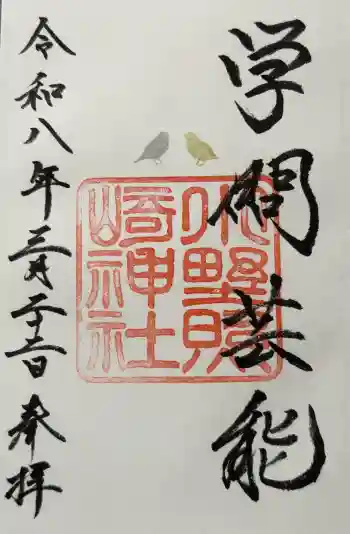 学問芸能
小野照
崎神社
令和八年三月二十二日 奉拝